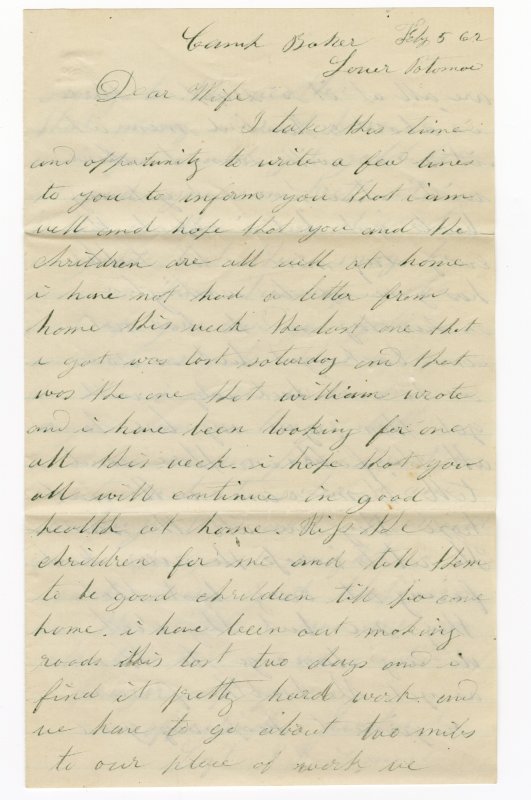 Camp Baker Feby 5 62
Lower Potomac
Dear Wife
I take this time
and opportunity to write a few lines
to you to inform you that i am
well and hope that you and the
chrildren are all well at home
i have not had a letter from
home this week the last one that
i got was last saturday and that
was the one that william wrote.
and i have been looking for one
all this week. i hope that you
all will continue in good
health at home. Kiss the
chrildren for me and tell them
to be good chrildren till pa come
home. i have been out making
roads this last two days and i
find it pretty hard work. and
we have to go about two miles
to our place of work we